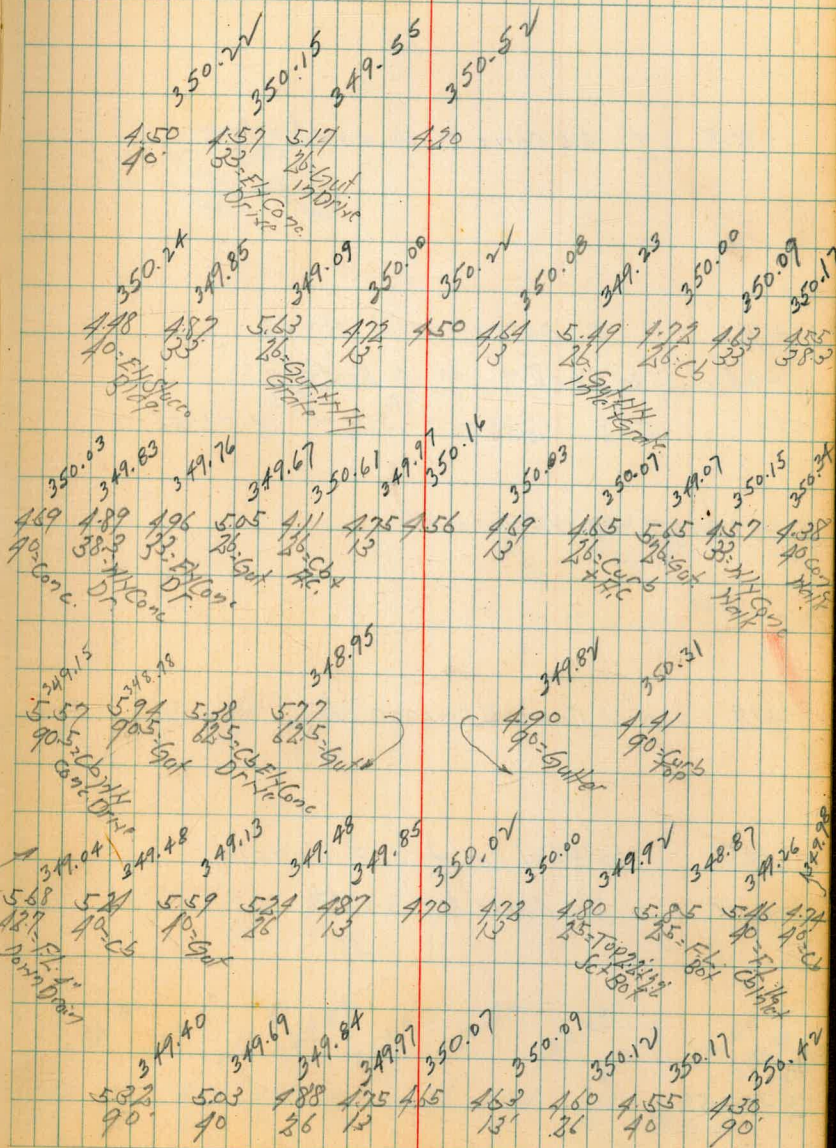 350.22 350.15 349.55 350.52
4.50 4.57 5.17 4.20
40 33=EH Conc. Drive 26=Gut in Drive
350.24 349.85 349.09 350.00 350.22 350.08 349.23 350.00 350.09 350.17
4.48 4.87 5.63 4.72 4.50 4.64 5.49 4.72 4.63 4.55
40=EH Stucco Bldg. 33 26=Gut Grate 13 13 26=Gut Inlet Grate 26=Cb 33 38.3
350.03 349.83 349.76 349.67 350.61 349.97 350.16 350.03 350.07 349.07 350.15 350.34
4.69 4.89 4.96 5.05 4.11 4.75 4.56 4.69 4.65 5.65 4.57 4.38
40=Conc. 38.3=WH Conc Dr. 33=EH Conc Dr. 26=Gut 26=Cb+ A.C. 13 13 26=Curb +A.C 26=Gut. 33=WH Conc Walk 40 Conc Walk
349.15 348.78 348.95 349.82 350.31
5.57 5.94 5.38 5.77 4.90 4.41
90.5=Cb WH Conc Drive 90.5=Gut 62.5=Cb EH Conc Drive 62.5=Gut 90=Gutter 90=Curb Top
349.04 349.48 349.13 349.48 349.85 350.02 350.00 349.92 348.87 349.26 349.98
5.68 5.24 5.59 5.24 4.87 4.70 4.72 4.80 5.85 5.46 4.74
42.7=F.L. 4" Down Drain 40=Cb 40=Gut 26 13 13 25=Top Jct Box 25=F.L. Box 40=F.L. Cb Inlet 40=Cb
349.40 349.69 349.84 349.97 350.07 350.09 350.12 350.17 350.42
5.32 5.03 4.88 4.75 4.65 4.63 4.60 4.55 4.30
90 40 26 13 13 26 40 90